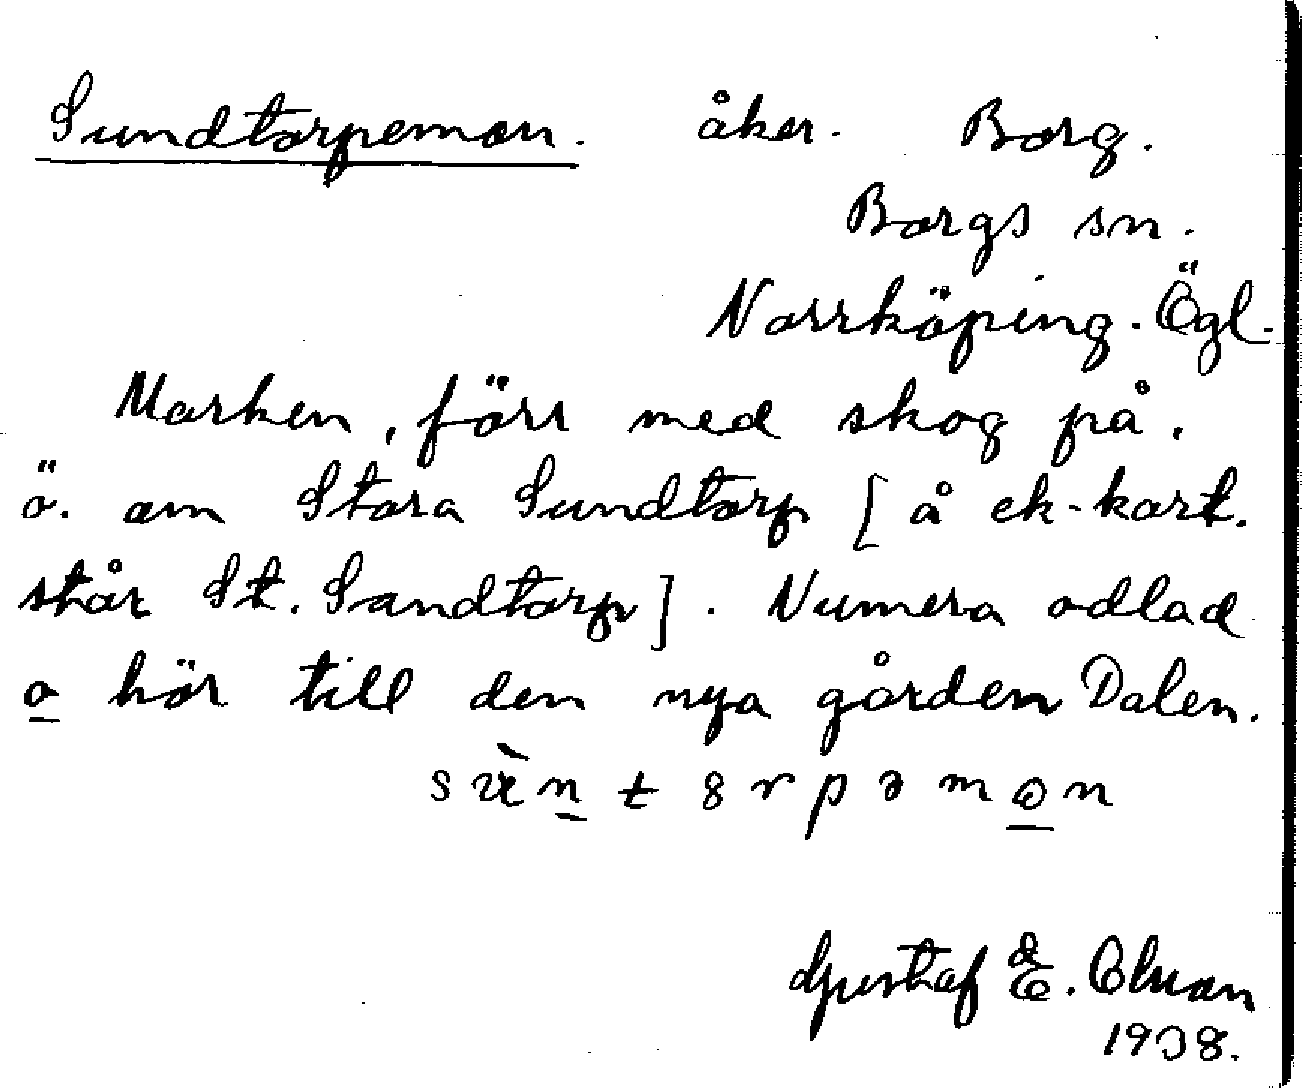 Sundtorpemon. åker. Borg.
Borgs sn.
Norrköping. Ögl.
Marken, förr med skog på,
ö. om Stora Sundtorp [å ek-kart.
står St. Sandtorp]. Numera odlad
o hör till den nya gården Dalen.
Gustaf E.
1938.